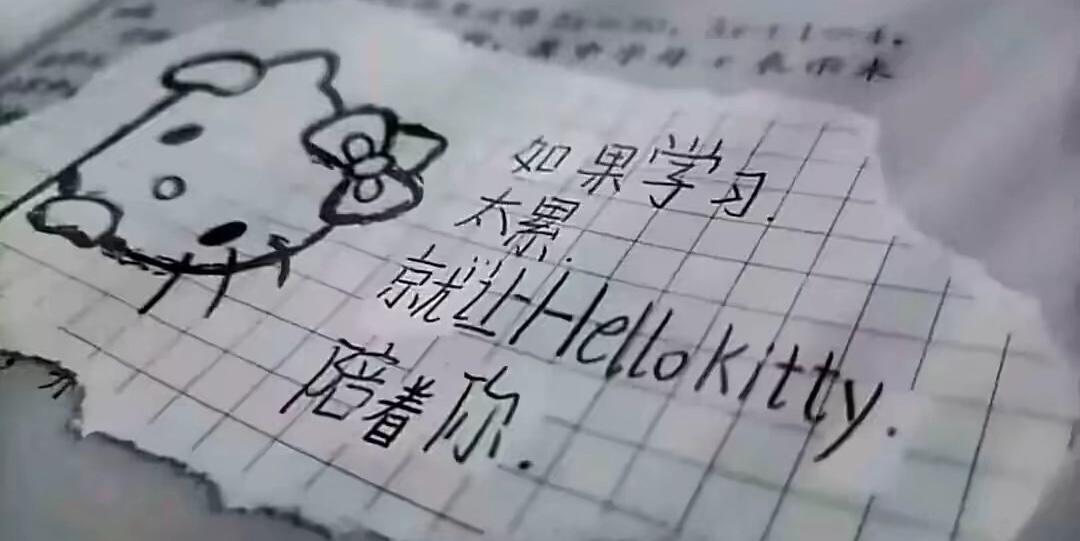 如果学习.
太累.
就让Hello kitty.
陪着你.